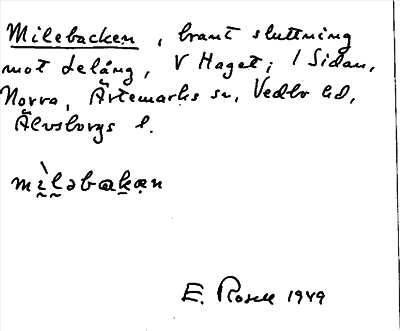 Milebacken, brant sluttning
mot Delång, V Haget; / Sidan,
Norra, Ärtemarks sn, Vedbo hd,
Älvsborgs l.
mìləbakən
E. Rosell 1949